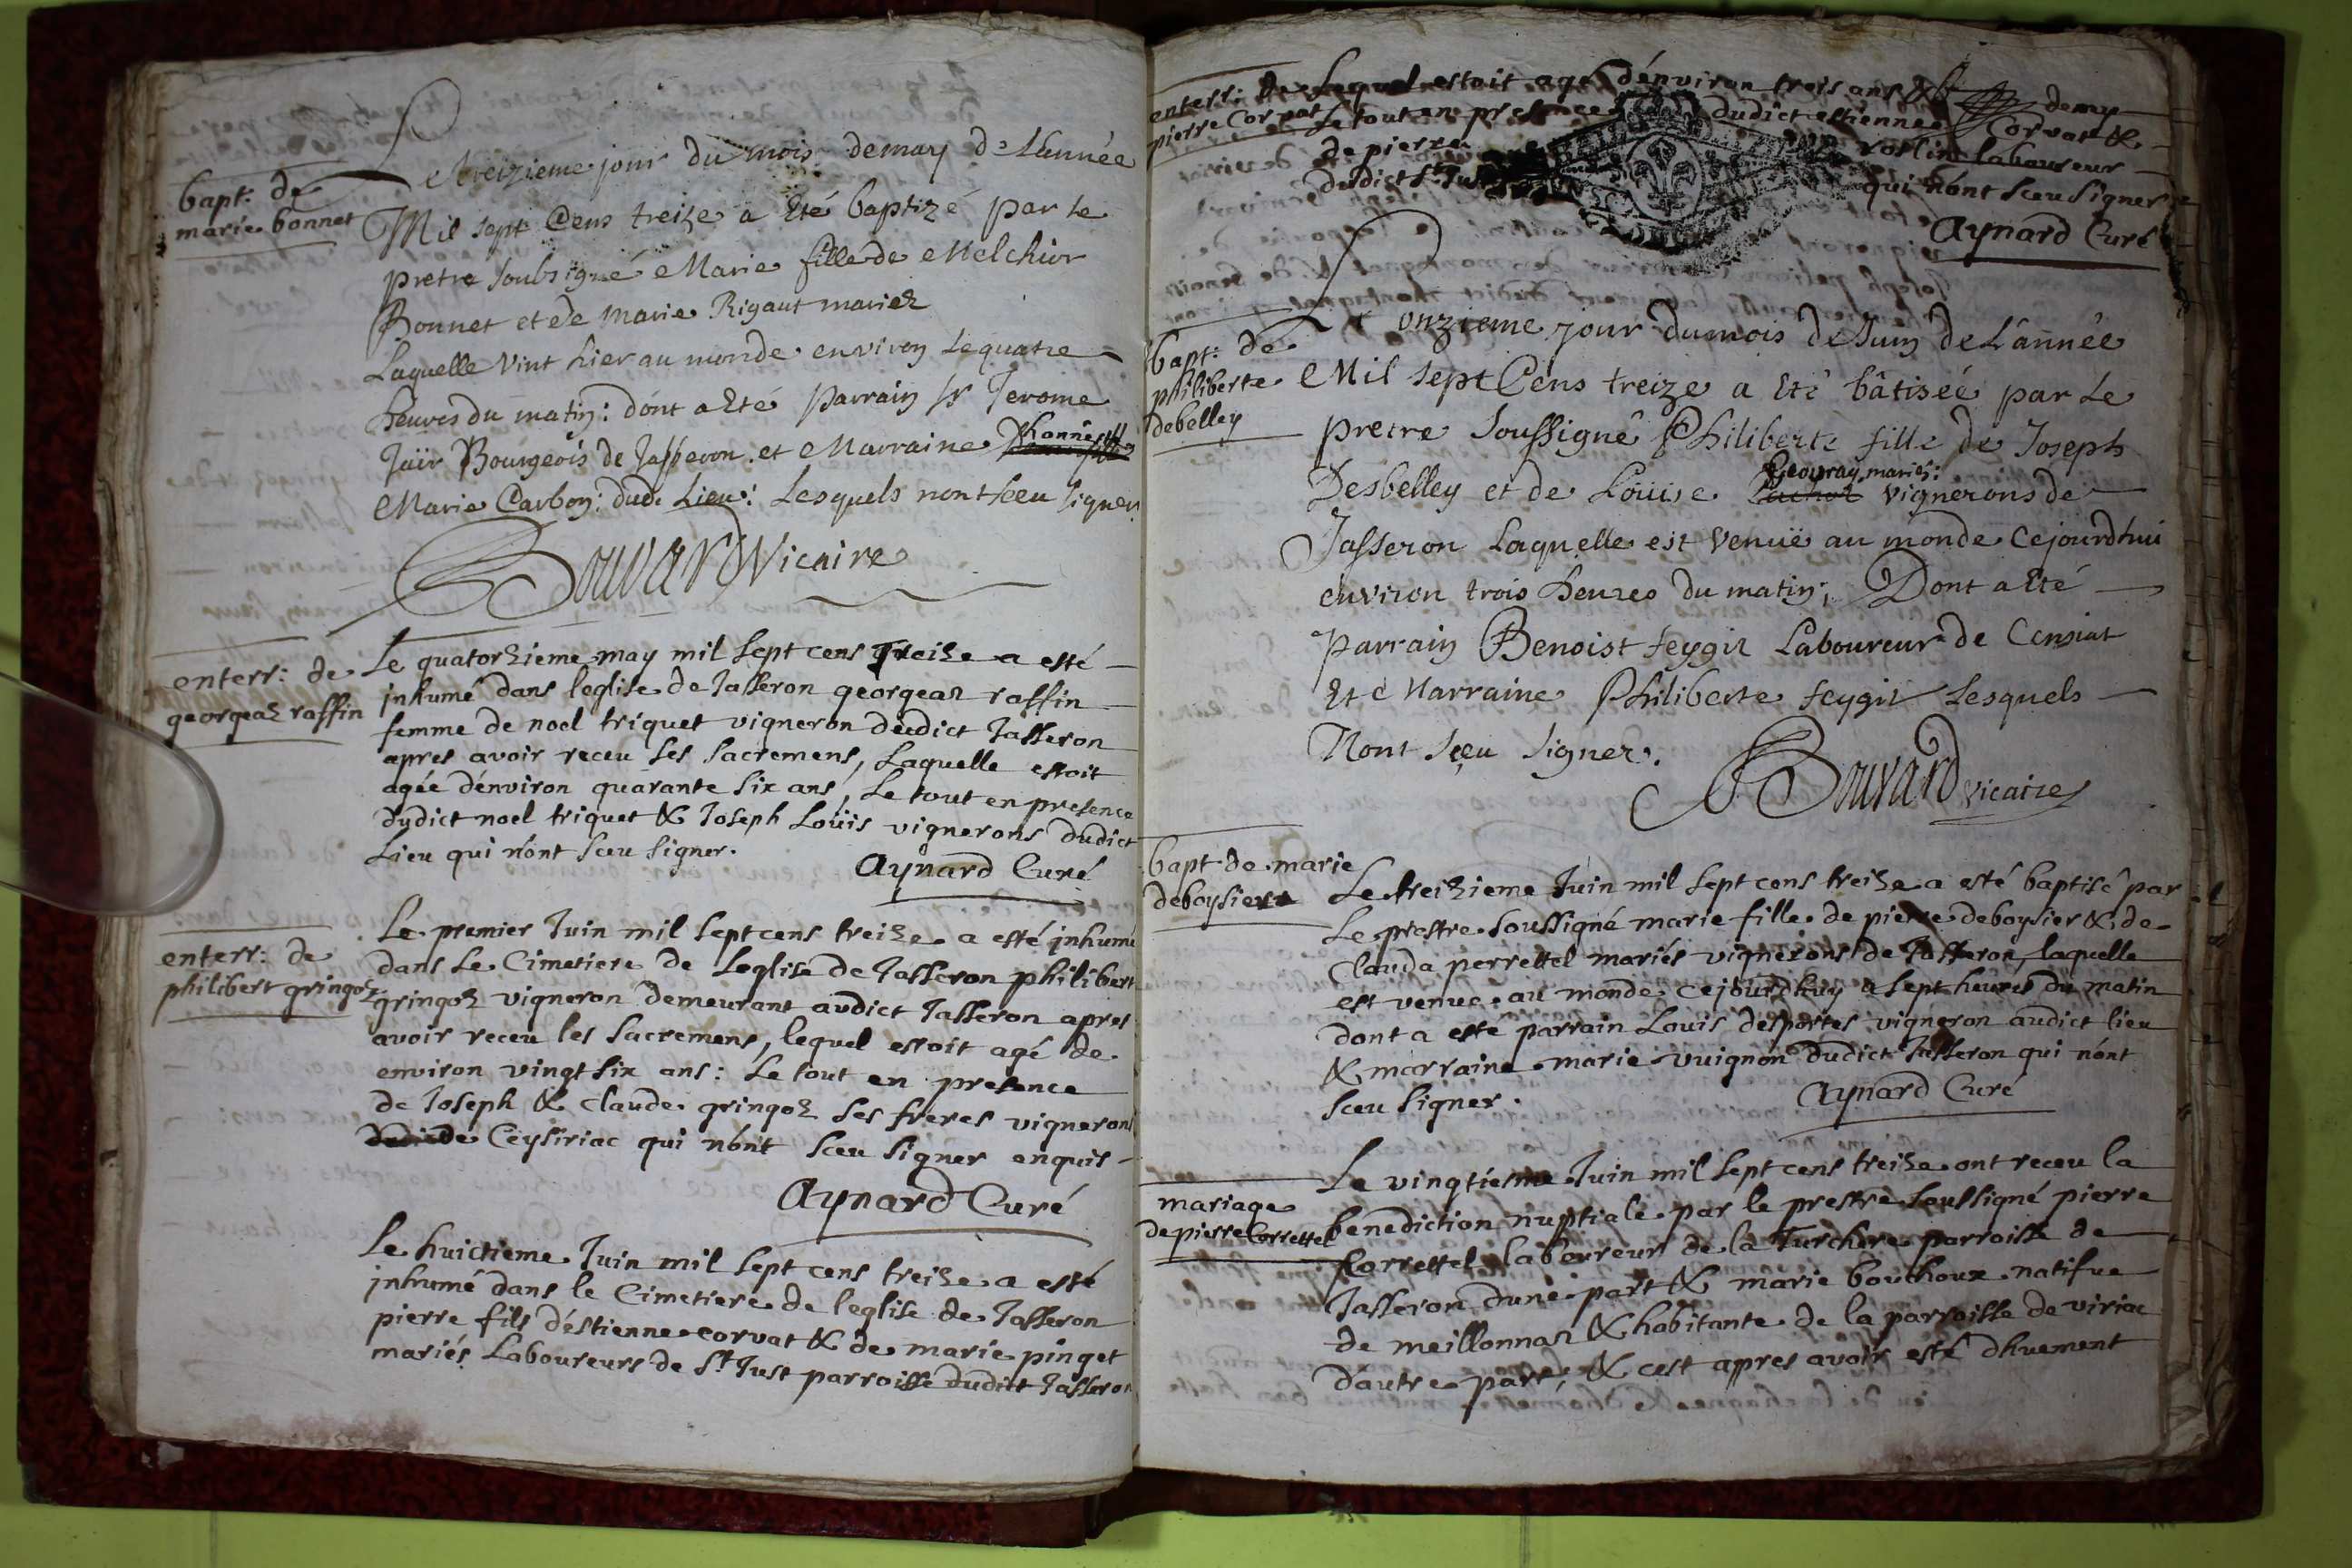 bapt: de
marie bonnet
Le treizieme jour du mois de may de L'année
Mil sept Cens treize a Eté baptizé par le
pretre soubsigné Marie fille de Melchior
Bonnet et de Marie Rigaut mariez
Laquelle vint hier au monde environ Le quatre
heures du matin: dont a Eté parrain sr Jerome
Bourgeois de Jasseron. et Marraine honnête
Marie Carbon: dud. Lieu: Lesquels nont sceu signer
Bouvard Vicaire
enterr: de
georgeaz raffin
Le quatorzieme may mil sept cens treize a esté
inhumé dans leglise de Jasseron georgeaz raffin
femme de noel triquet vigneron dudict Jasseron
apres avoir receu les sacremens, Laquelle estoit
agée d'environ quarante six ans, Le tout en presence
dudict noel triquet & Joseph Louïs vignerons dudict
Lieu qui n'ont sceu signer.
Aynard Curé
enterr: de
philibert gringoz
Le premier Juin mil sept cens treize a esté inhumé
dans Le Cimetiere de Leglise de Jasseron philibert
gringoz vigneron demeurant audict Jasseron apres
avoir receu les sacremens, lequel estoit agé de
environ vingt six ans: Le tout en presence
de Joseph & Claude gringoz ses freres vignerons
de Ceysiriac qui n'ont sceu signer enquis
Aynard Curé
Le huictieme Juin mil sept cens treize a esté
inhumé dans le Cimetiere de leglise de Jasseron
pierre fils d'estienne corvat & de marie pinget
mariés Laboureurs de St Just parroisse dudict Jasseron
enterr: de
pierre Corvat
Lequel estoit agé d'environ trois ans & demy
Le tout en presence dudict estienne Corvat &
de pierre roslin laboureur
dudict St Just qui n'ont sceu signer
Aynard Curé
bapt: de
philiberte
debelley
Le onzieme jour du mois de Juin de L'année
Mil sept Cens treize a Eté bâtisée par Le
pretre soussigné Philiberte fille de Joseph
Desbelley et de Loüise Geovray mariés: vignerons de
Jasseron Laquelle est venüe au monde Cejourdhui
environ trois heures du matin; Dont a Eté
parrain Benoist feygir Laboureur de Censiat
Et Marraine Philiberte feygir Lesquels
Nont sçeu signer.
Bouvard vicaire
bapt. de marie
deboysier
Le treizieme Juin mil sept cens treize a esté baptisé par
Le prestre soussigné marie fille de pierre deboysier & de
Clauda perrettel mariés vignerons de Jasseron, laquelle
est venue au monde cejourdhuy a sept heures du matin
dont a esté parrain Louis desportes vigneron audict lieu
& marraine marie vuignon dudict Jasseron qui n'ont
sceu signer.
Aynard Curé
mariage
de pierre Correttel
Le vingtiesme Juin mil sept cens treize ont receu la
benediction nuptiale par le prestre soussigné pierre
Correttel laboureur de la Turchere parroisse de
Jasseron dune part & marie bouchoux natifue
de meillonnaz & habitante de la parroisse de viriac
dautre part, & cest apres avoir esté dhuement